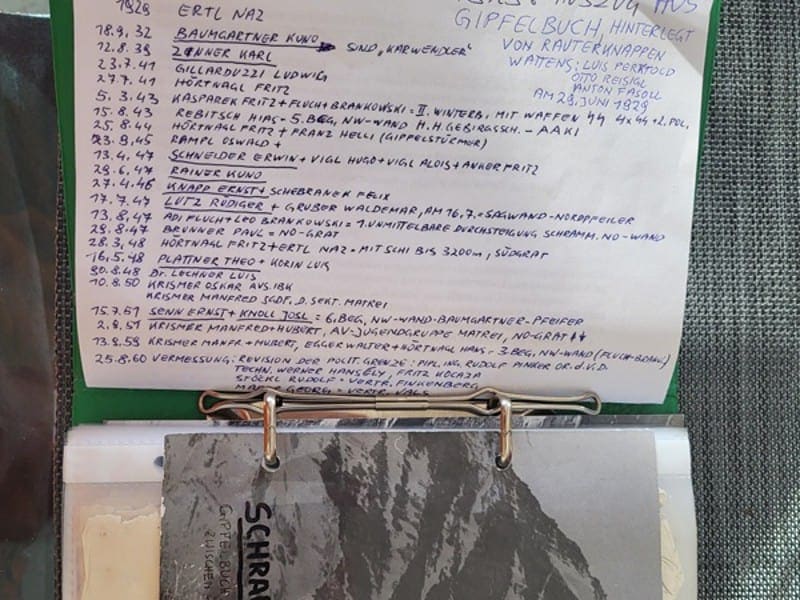 AUSZUG AUS
GIPFELBUCH, HINTERLEGT
VON RAUTERKNAPPEN
WATTENS; LUIS PERKTOLD
OTTO REISIGL
ANTON FASOLL
AM 29. JUNI 1929
1929 ERTL NAZ
18.9.32 BAUMGARTNER KUNO
12.8.39 ZINNER KARL SIND "KARWENDLER"
23.7.41 GILLARDUZZI LUDWIG
27.7.41 HÖRTNAGL FRITZ
5.3.43 KASPAREK FRITZ + FLUCH + BRANKOWSKI = II. WINTERB. MIT WAFFEN 4x + 2. POL.
15.8.43 REBITSCH HIAS = 5. BEG, NW-WAND H.H. GEBIRGSSCH. - AAKI
25.8.44 HÖRTNAGL FRITZ + FRANZ HELLI (GIPFELSTÜRMER)
23.9.45 RAMPL OSWALD +
13.4.47 SCHNEIDER ERWIN + VIGL HUGO + VIGL ALOIS + ANKER FRITZ
29.6.47 RAINER KUNO
27.4.46 KNAPP ERNST + SCHEBRANEK FELIX
17.7.47 LUTZ RÜDIGER + GRUBER WALDEMAR, AM 16.7. = SAGWAND-NORDPFEILER
13.8.47 ADI FLUCH + LEO BRANKOWSKI = 1. UNMITTELBARE DURCHSTEIGUNG SCHRAMM. NO-WAND
29.8.47 BRUNNER PAUL = NO-GRAT
28.3.48 HÖRTNAGL FRITZ + ERTL NAZ = MIT SCHI BIS 3200m, SÜDGRAT
16.5.48 PLATTNER THEO + KORIN LUIS
30.8.48 Dr. LECHNER LUIS
10.8.50 KRISMER OSKAR AVS. IBK
KRISMER MANFRED SGDF. D. SEKT. MATREI
15.7.51 SENN ERNST + KNOLL JOSL = 6. BEG, NW-WAND-BAUMGARTNER-PFEIFER
2.8.51 KRISMER MANFRED + HUBERT, AV-JUGENDGRUPPE MATREI, NO-GRAT
13.8.59 KRISMER MANFR. + HUBERT, EGGER WALTER + HÖRTNAGL HANS = 3. BEG, NW-WAND (FLUCH-BRANK)
25.8.60 VERMESSUNG: REVISION DER POLIT. GRENZE: DIPL. ING. RUDOLF PINKER OR. d. V. D.
TECHN. WERNER HANSÉLY, FRITZ KOCAZA
STÖCKL RUDOLF = VERTR. FINKENBERG
GEORG = VERTR. VALS
SCHRA
GIPFELBUCH
ZWISCHEN